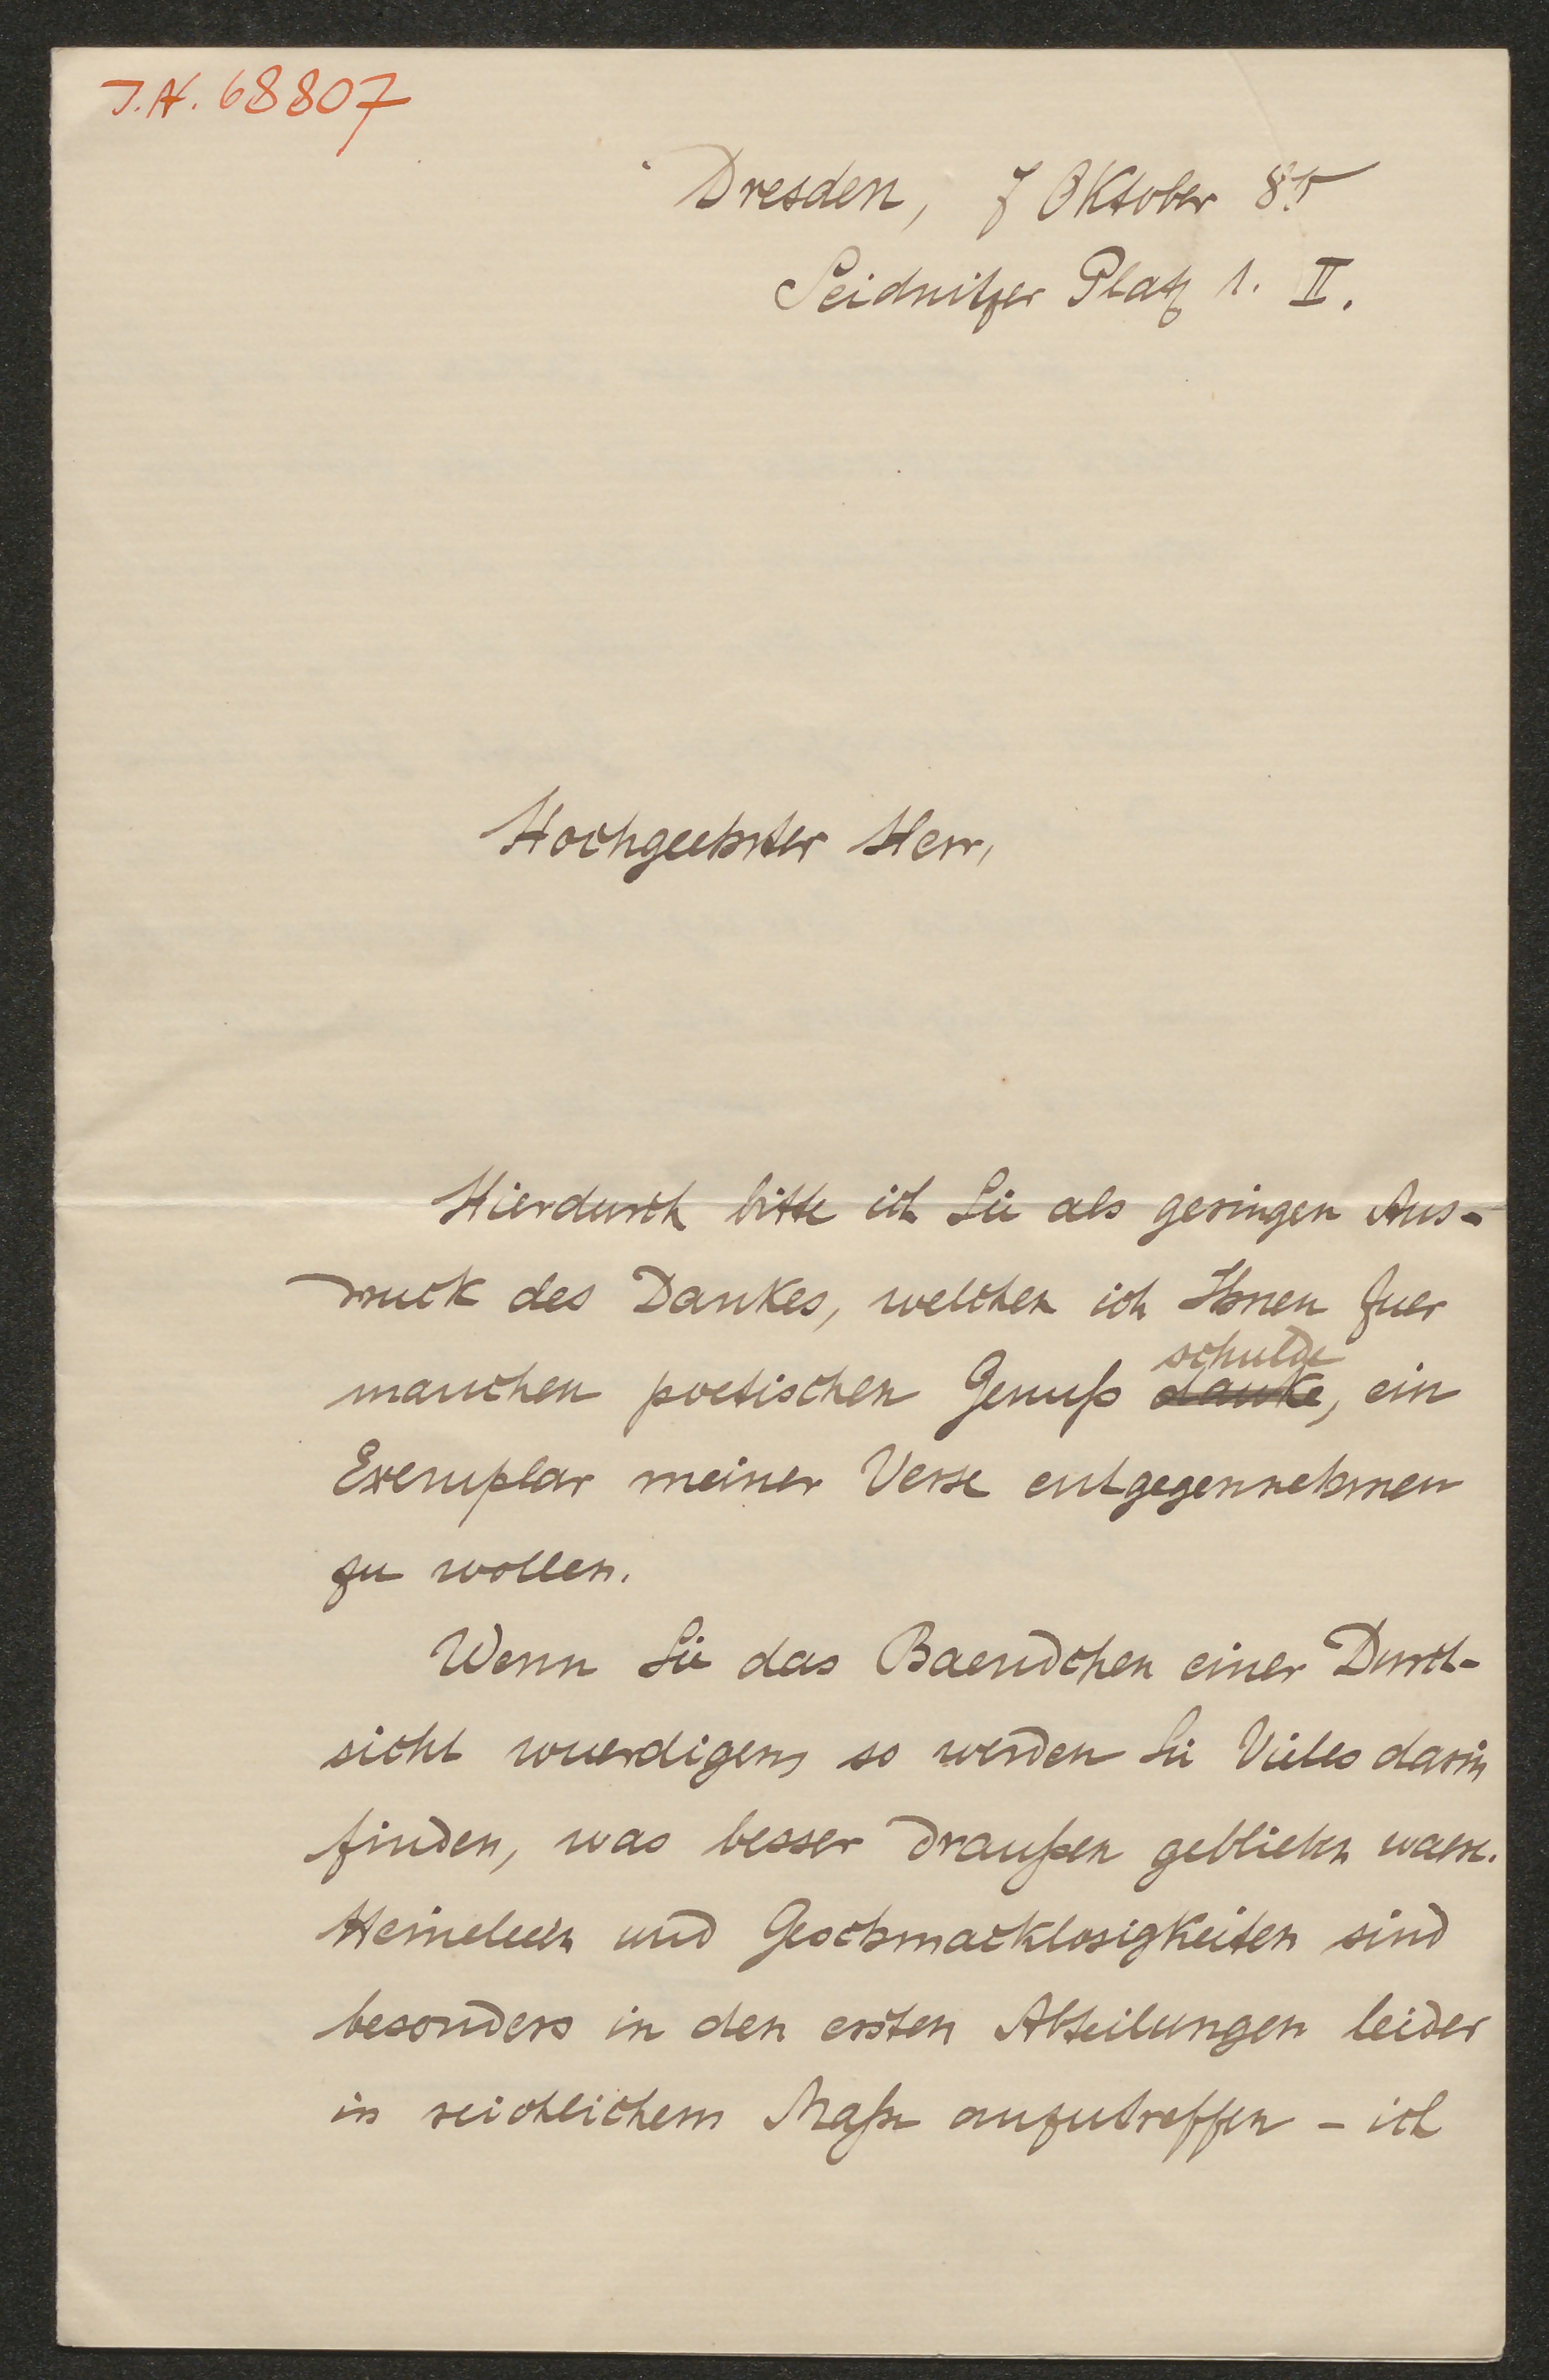 J.N. 68807
Dresden, 7 Oktober 85
Seidnitzer Platz 1. II.
Hochgeehrter Herr,
Hierdurch bitte ich Sie als geringen Aus-
druck des Dankes, welchen ich Ihnen fuer
schulde
manchen poetischen Genuß danke, ein
Exemplar meiner Verse entgegennehmen
zu wollen.
Wenn Sie das Baendchen einer Durch-
sicht wuerdigen, so werden Sie Vieles darin
finden, was besser draußen geblieben waere.
Heineleien und Geschmacklosigkeiten sind
besonders in den ersten Abteilungen leider
in reichlichem Maße anzutreffen - ich